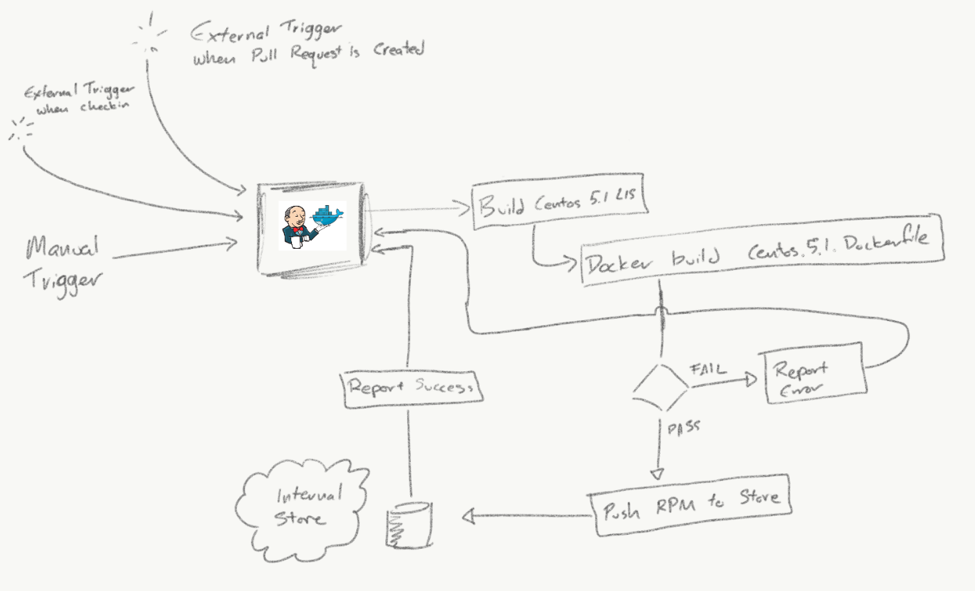 External Trigger
when Pull Request is Created
External Trigger
when checkin
Manual
Trigger
Build Centos 5.1 LIS
Docker build Centos.5.1.Dockerfile
FAIL
Report
Error
Report Success
PASS
Internal
Store
Push RPM to Store